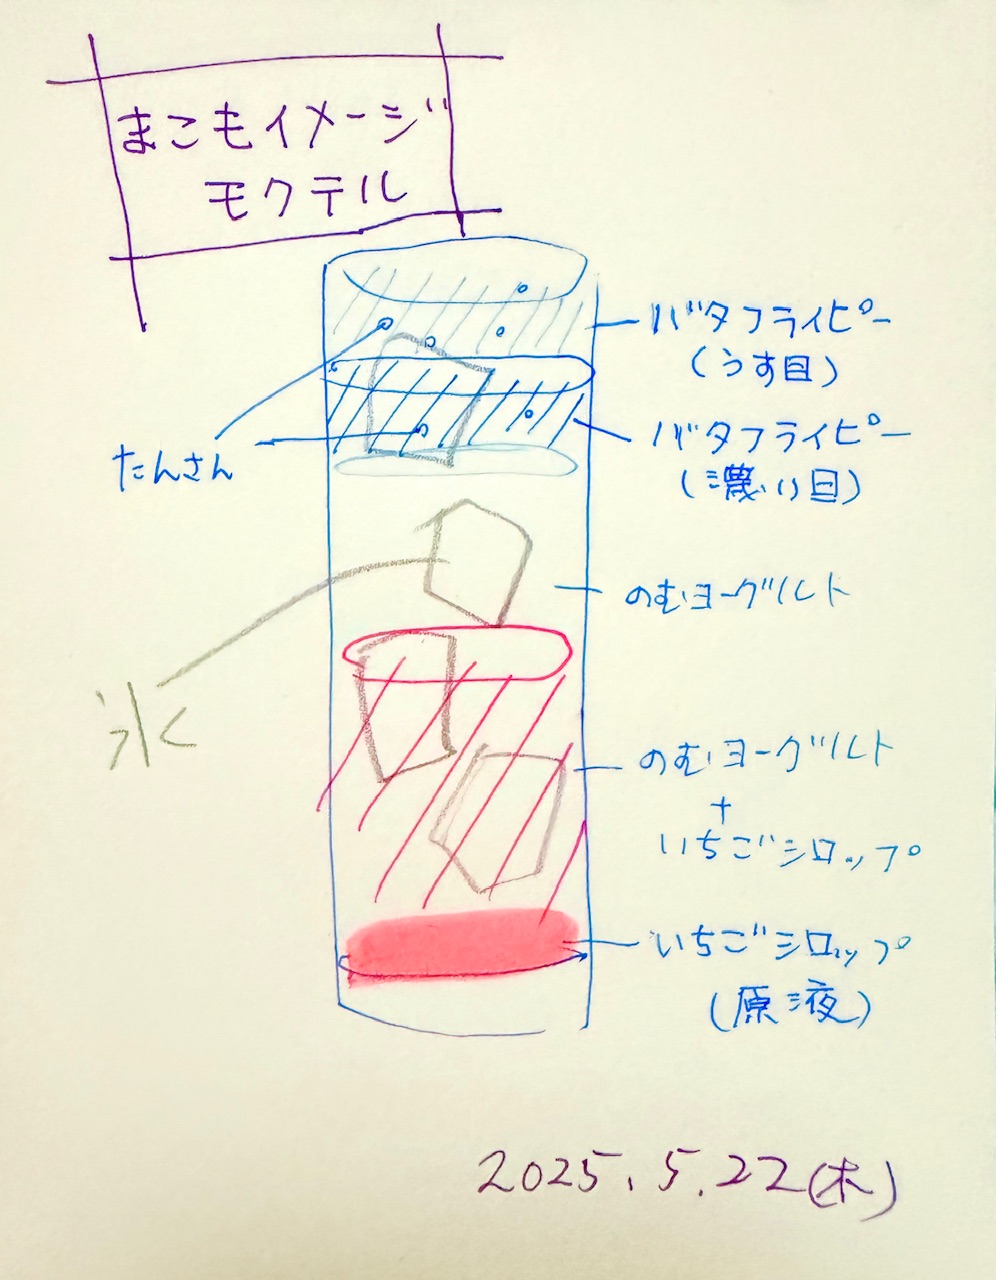 まこもイメージ
モクテル
バタフライピー
(うす目)
バタフライピー
(濃い目)
たんさん
のむヨーグルト
氷
のむヨーグルト
+
いちごシロップ
いちごシロップ
(原液)
2025.5.22(木)